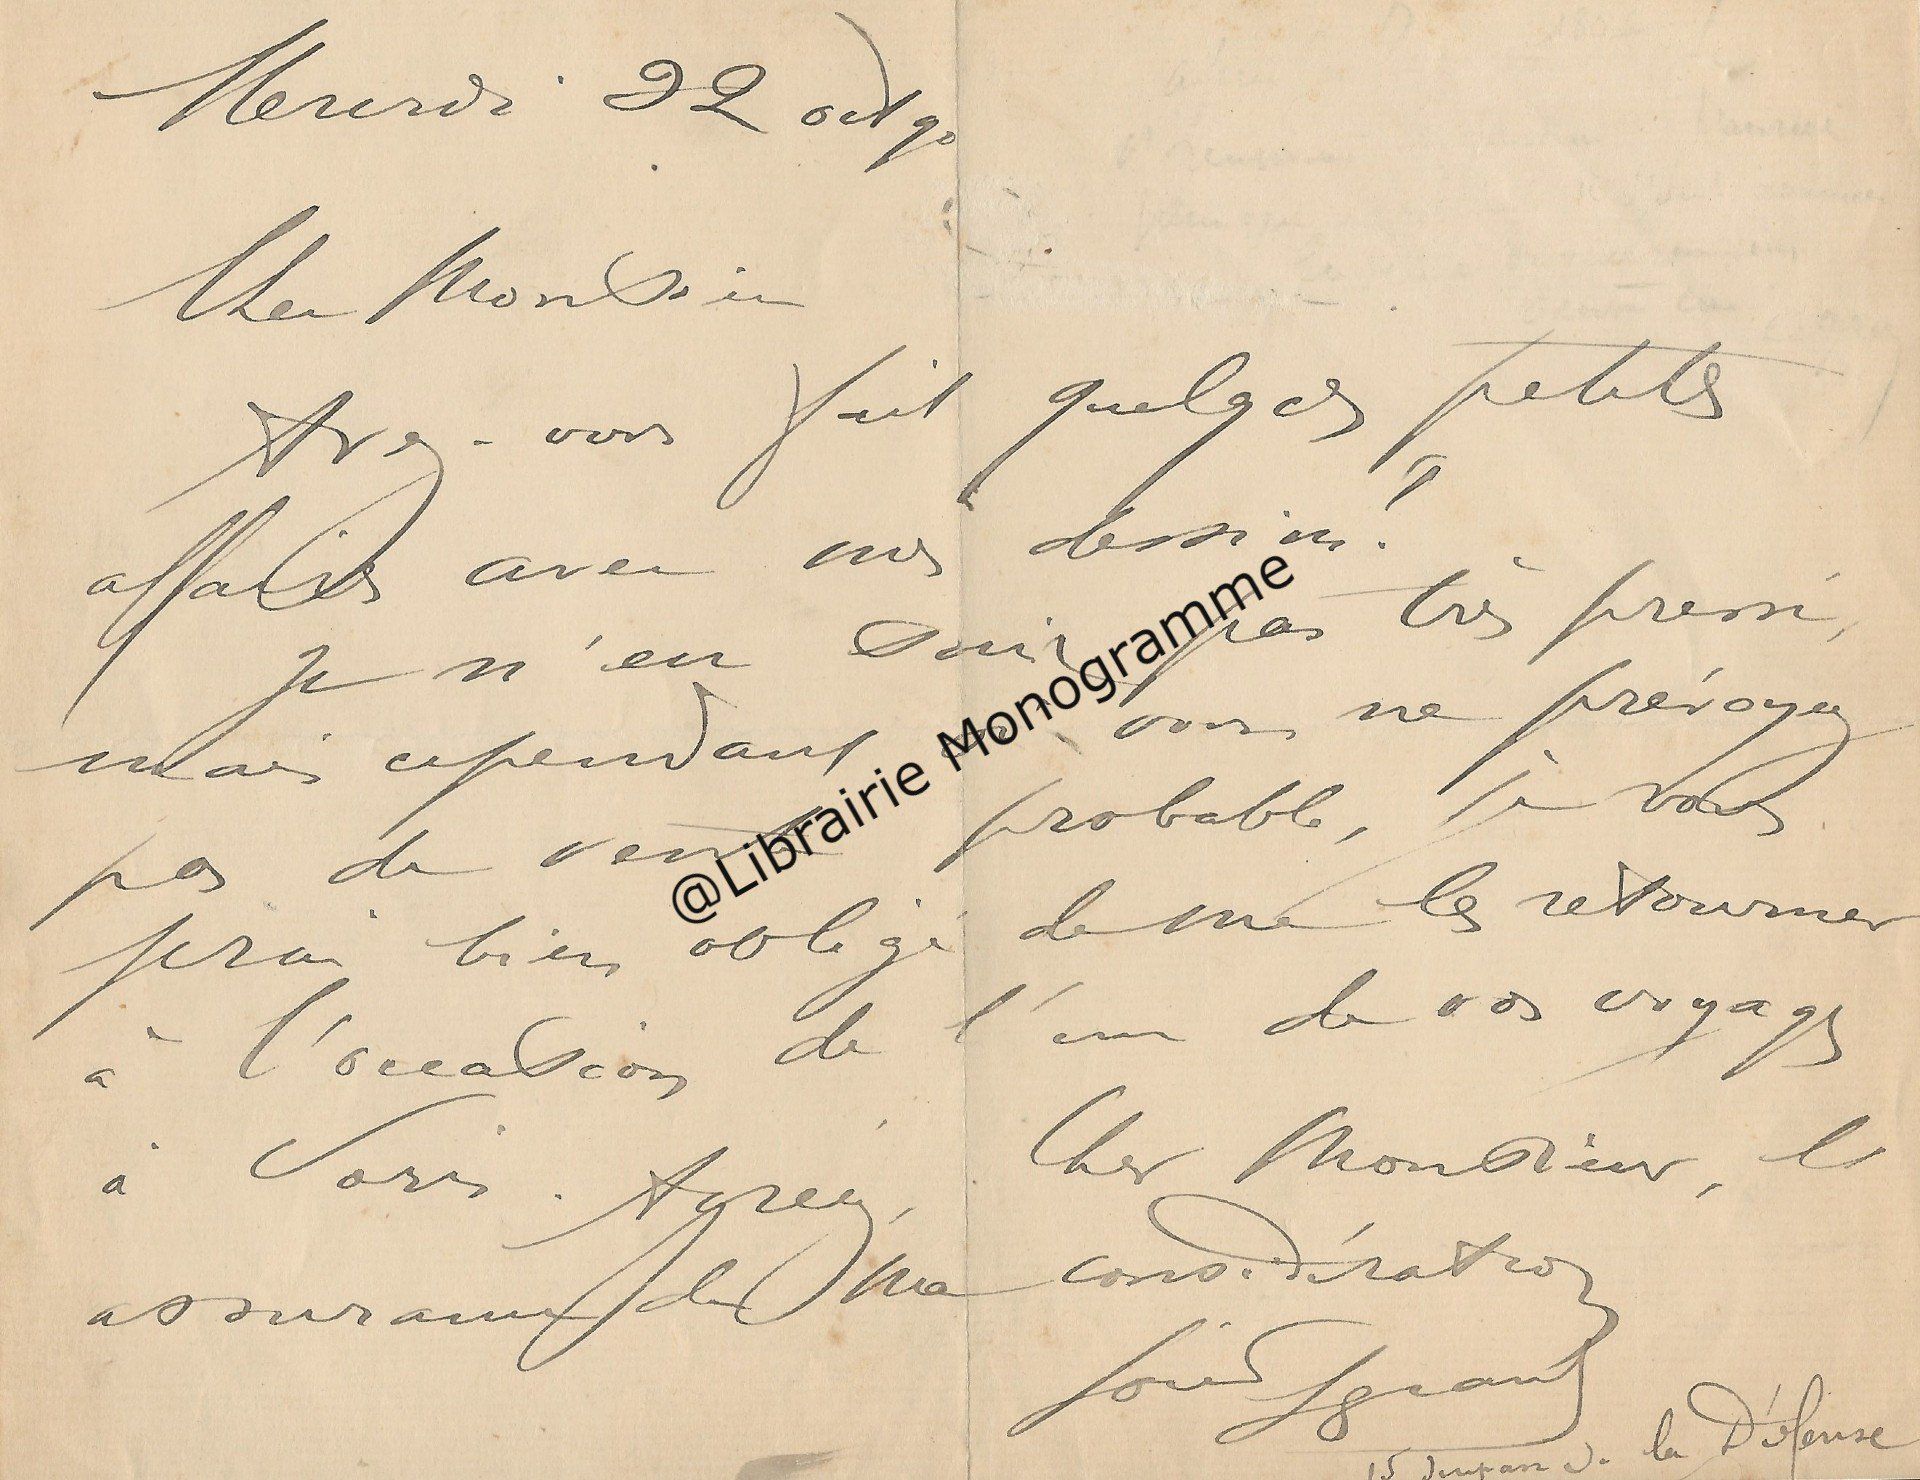 Mercredi 22 oct 90
Cher Monsieur
Avez-vous fait quelques petites
affaires avec mes dessins?
Je n'en suis pas très pressé,
mais cependant si vous ne prévoyez
pas de vente probable, je vous
serai bien obligé de me les retourner
à l'occasion de l'un de vos voyages
à Paris. Agréez, Cher Monsieur, l
assurance de ma considération
Louis Legrand
15 impasse de la Défense
@Librairie Monogramme